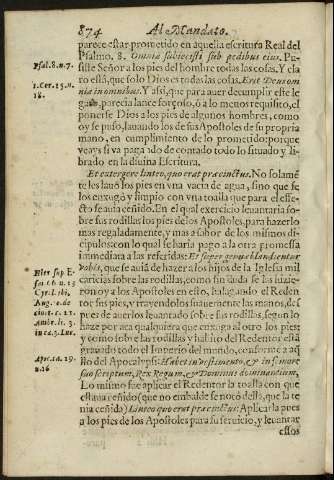 874 Al Mandato.
parece estar prometido en aquella escritura Real del
Psalmo. 8. Omnia subiecisti sub pedibus eius. Pu-
Psal. 8. n. 7.
siste Señor a los pies del hombre todas las cosas. Y cla
ro està, que solo Dios es todas las cosas. Erit Deus om
1. Cor. 15. n.
28.
nia in omnibus. Y assi, que para auer de cumplir este le
gado, parecia lance forçoso, ò a lo menos requisito, el
ponerse Dios a los pies de algunos hombres, como
oy se puso, lauando los de sus Apostoles de su propria
mano, en cumplimiento de lo prometido: porque
veays si va pagado de contado todo lo situado y li-
brado en la diuina Escritura.
Et extergere linteo, quo erat præcinctus. No solamē
te les lauò los pies en vna vacia de agua, sino que se
los enxugò y limpiò con vna toalla que para el effe-
cto se auia ceñido. En el qual exercicio leuantaria so-
bre sus rodillas los pies de los Apostoles, para hazerlo
mas regaladamente, y mas a sabor de los mismos di-
cipulos: con lo qual se haria pago a la otra promessa
immediata a las referidas: Et super genua blandientur
vobis, que se auia de hazer a los hijos de la Iglesia mil
caricias sobre las rodillas, como sin duda se las hizie-
ron oy a los Apostoles en esto, halagando el Reden
tor sus pies, y trayendolos suauemente las manos, des
pues de auerlos leuantado sobre sus rodillas, segun lo
haze por aca qualquiera que enxuga al otro los pies:
y como sobre las rodillas y habito del Redentor està
grauado todo el Imperio del mundo, conforme a aq̃
llo del Apocalyp: Habet in vestimento, & in femore
Apoc. 19.
n. 16
suo scriptum, Rex Regum, & Dominus dominantium,
Lo mismo fue aplicar el Redentor la toalla con que
estaua ceñido (que no embalde se notò dello, que la te
nia ceñida) Linteo quo erat præcinctus: Aplicarla pues
a los pies de los Apostoles para su seruicio, y leuantar
essos